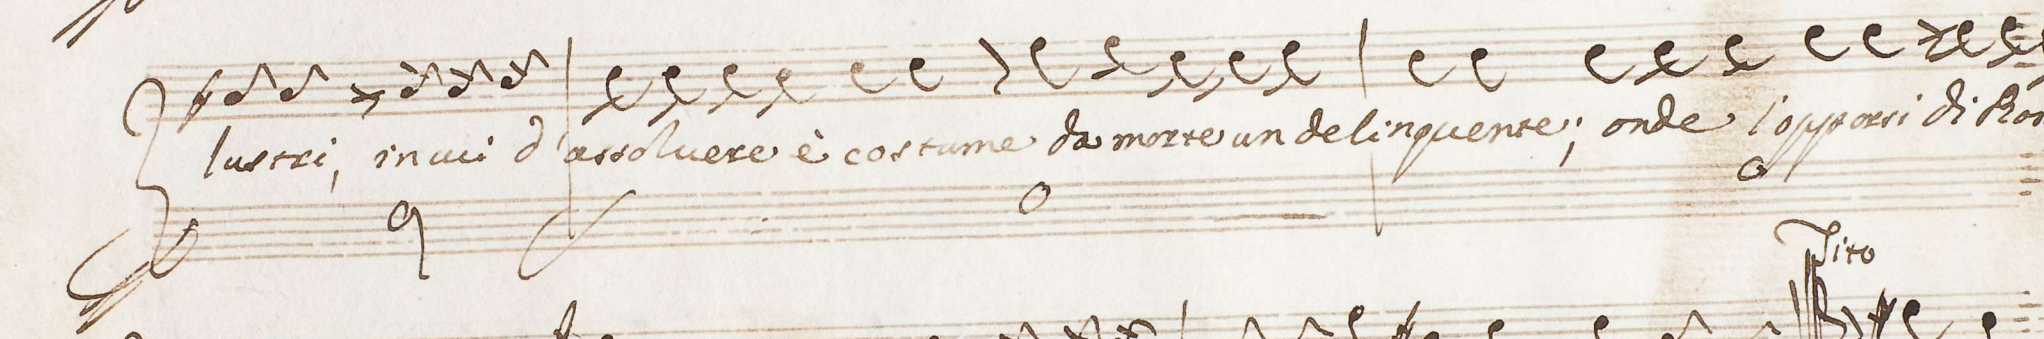 lustri, in uui d'assoluere è costume da morte un delinquente; onde l'opporsi di Ro
Tito